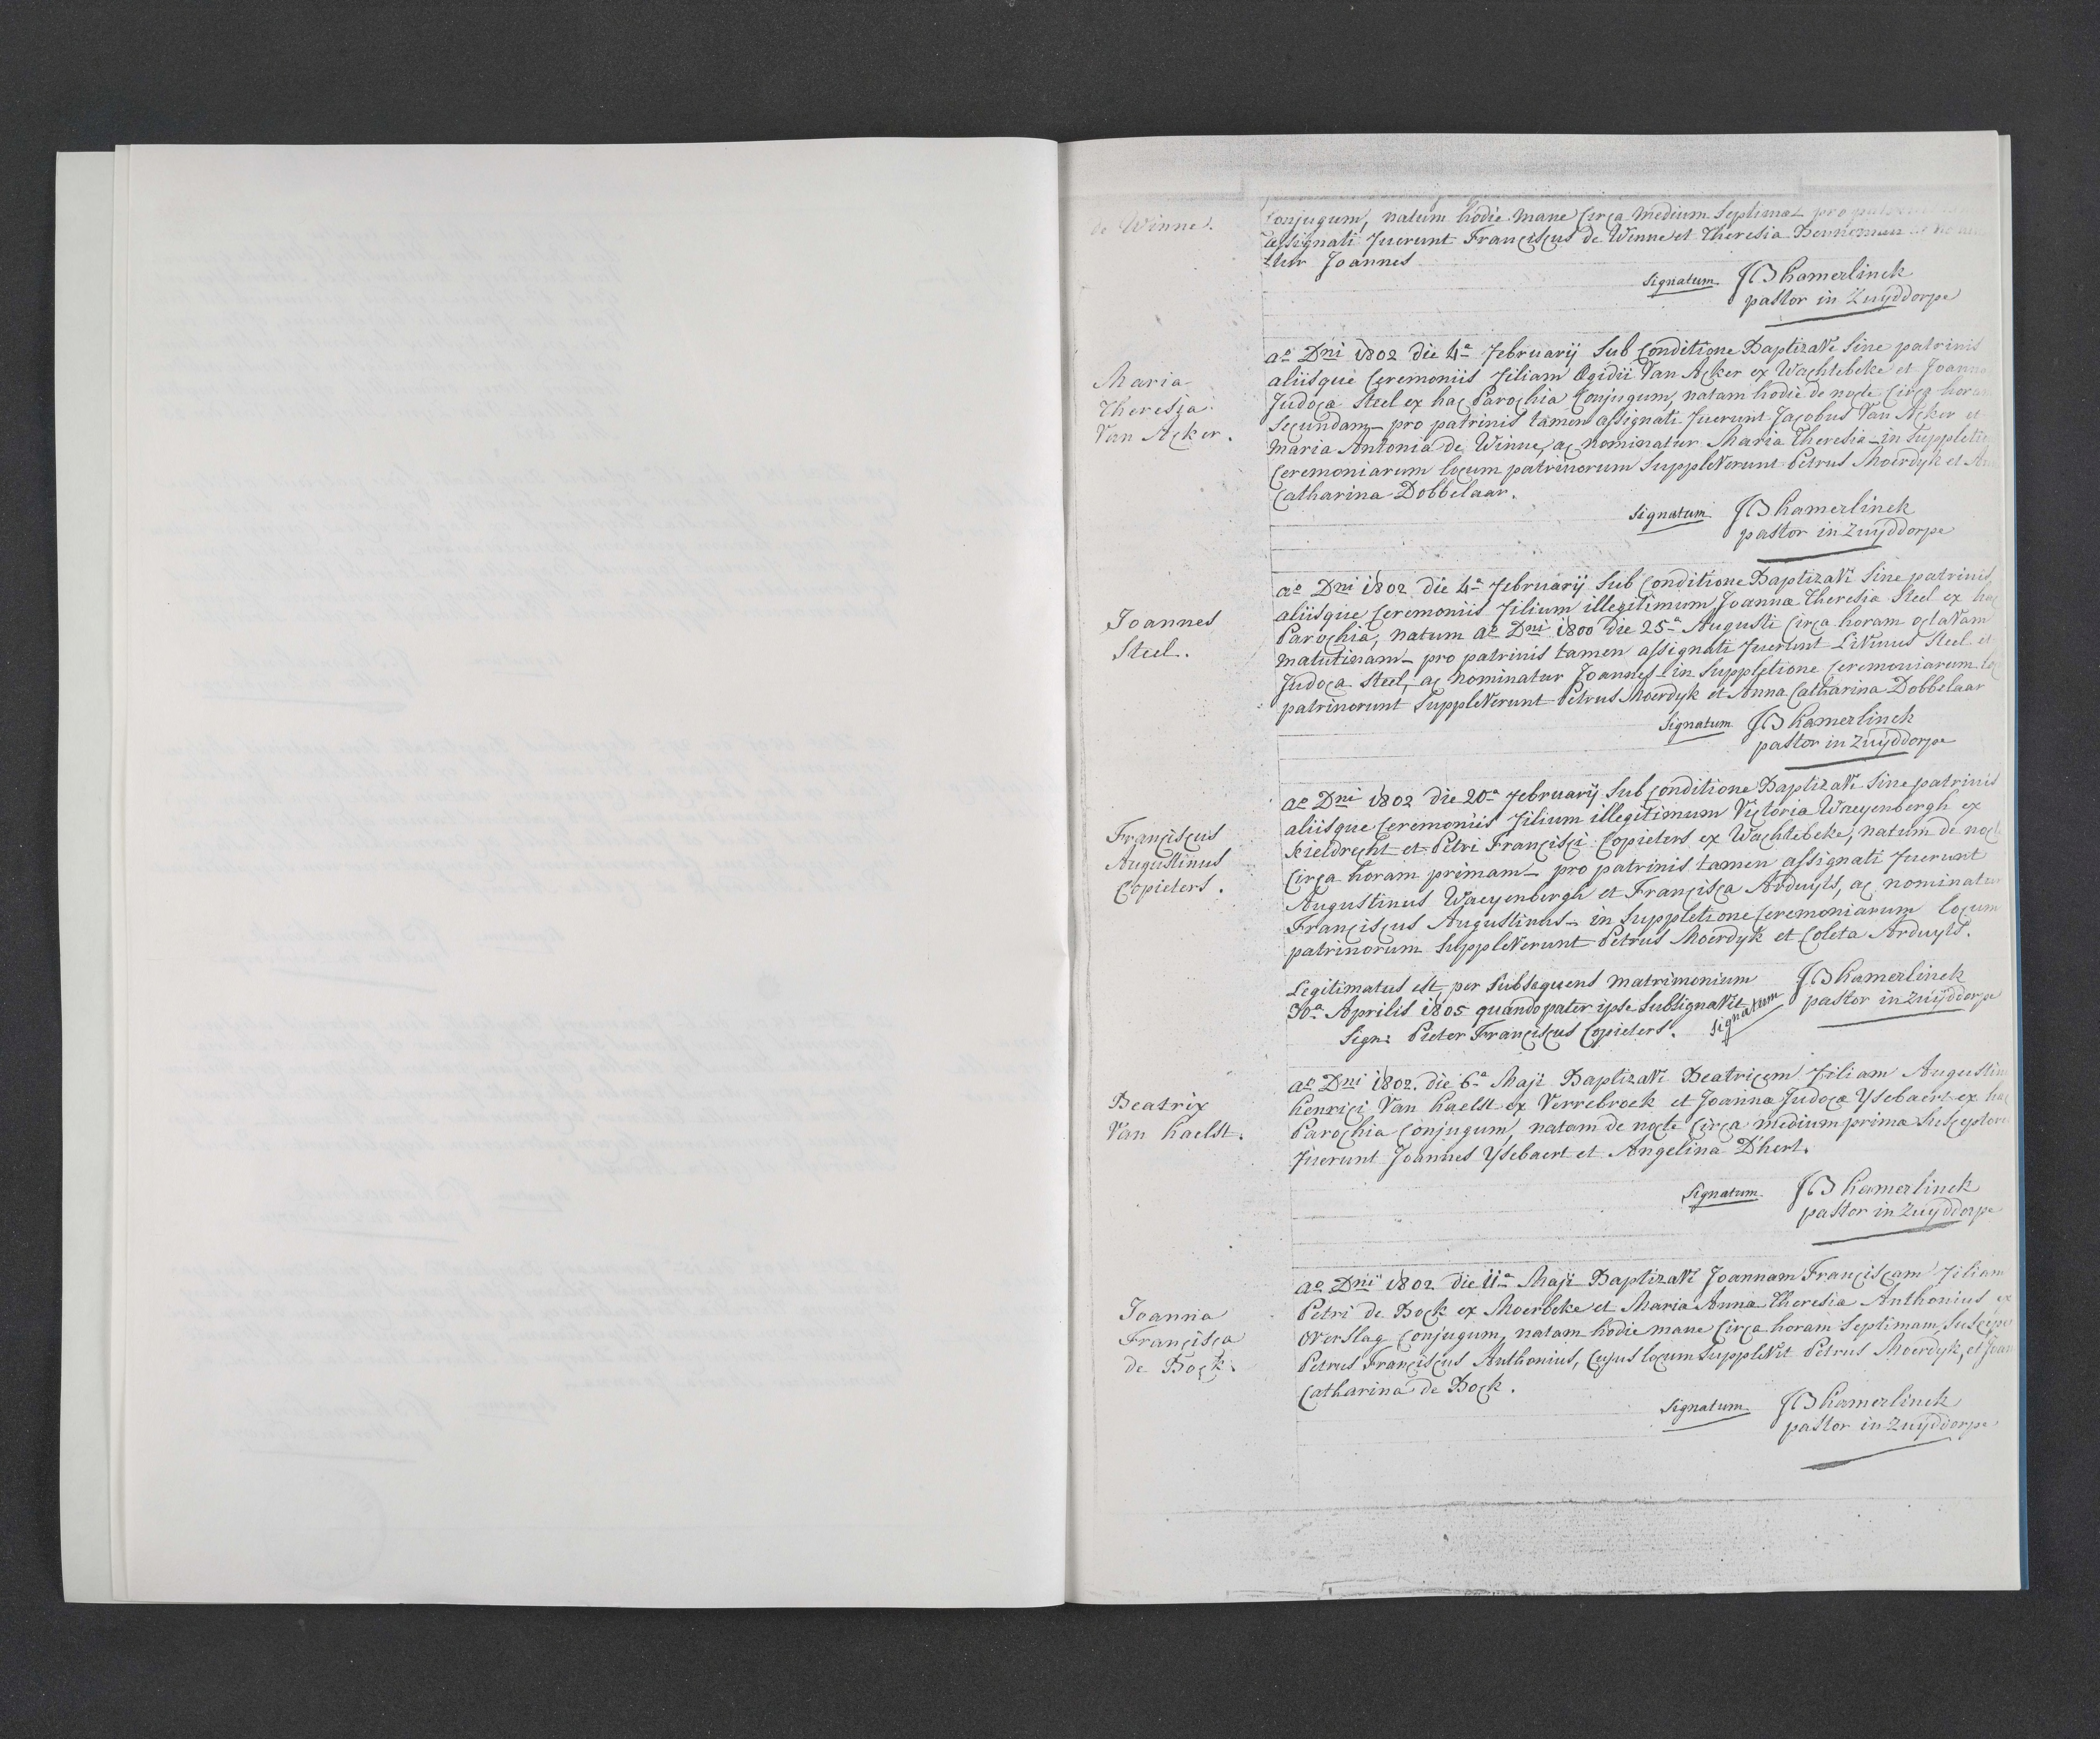 de Winne.
Conjugum, natum hodie mane Circa medium Septimæ
assignati fuerunt Franciscus de Winne et Theresia
=tur Joannes
Signatum JB hamerlinck
pastor in Zuÿddorpe
Maria
Theresia
Van Acker.
aº Dni 1802 die 4ª februarÿ Sub Conditione Baptizavi Sine patrinis
aliisque Ceremoniis filiam Ægidii Van Acker ex Wachtebeke et Joanna
Judoca Steel ex hac Parochia Conjugum, natam hodie de nocte Circa horam
Secundam – pro patrinis tamen assignati fuerunt Jacobus Van Acker et
Maria Antonia de Winne, ac nominatur Maria Theresia – in Suppletio
Ceremoniarum locum patrinorum Suppleverunt Petrus Moerdyk et An
Catharina Dobbelaar.
Signatum JB hamerlinck
pastor in Zuÿddorpe
Joannes
Steel.
aº Dni 1802 die 4ª februarÿ Sub Conditione Baptizavi Sine patrinis
aliisque Ceremoniis filium illegitimum Joanna Theresia Steel ex hac
Parochia, natum aº Dni 1800 die 25ª Augusti Circa horam octavam
matutinam – pro patrinis tamen assignati fuerunt Livinus Steel et
Judoca Steel, ac nominatur Joannes – in Suppletione Ceremoniarum lo
patrinorunt Suppleverunt Petrus Moerdyk et Anna Catharina Dobbelaar
Signatum JB hamerlinck
pastor in Zuÿddorpe
Franciscus
Augustinus
Copieters.
aº Dni 1802 die 20ª februarÿ Sub Conditione Baptizavi Sine patrinis
aliisque Ceremoniis filium illegitimum Victoria Waeyenbergh ex
Kieldrecht et Petri Francisci Copieters ex Wachtebeke, natum de noct
Circa horam primam – pro patrinis tamen assignati fuerunt
Augustinus Waeyenbergh et Francisca Arduyts, ac nominatur
Franciscus Augustinus – in Suppletione Ceremoniarum locum
patrinorum Suppleverunt Petrus Moerdyk et Coleta Arduyts.
Legitimatus est per Subsequens matrimonium
30ª Aprilis 1805 quando pater ipse Subsignavit
Sign: Pieter Franciscus Copieters.
Signatum JB hamerlinck
pastor in Zuÿddorpe
Beatrix
Van haelst.
aº Dni 1802. die 6ª Maji Baptizavi Beatricem filiam Augustin
henrici Van haelst ex Verrebroek et Joanna Judoca Ysebaert ex hac
Parochia Conjugum, natam de nocte Circa medium prima Susceptore
fuerunt Joannes Ysebaert et Angelina D'hert.
Signatum JB hamerlinck
pastor in Zuÿddorpe
Joanna
Francisca
de Bock.
aº Dni 1802 die 11ª Maji Baptizavi Joannam Franciscam filiam
Petri de Bock ex Moerbeke et Maria Anna Theresia Anthonius ex
Overslag Conjugum, natam hodie mane Circa horam Septimam, Suscepe
Petrus Franciscus Anthonius, Cujus locum Supplevit Petrus Moerdyk, et Joan
Catharina de Bock.
Signatum JB hamerlinck
pastor in Zuÿddorpe